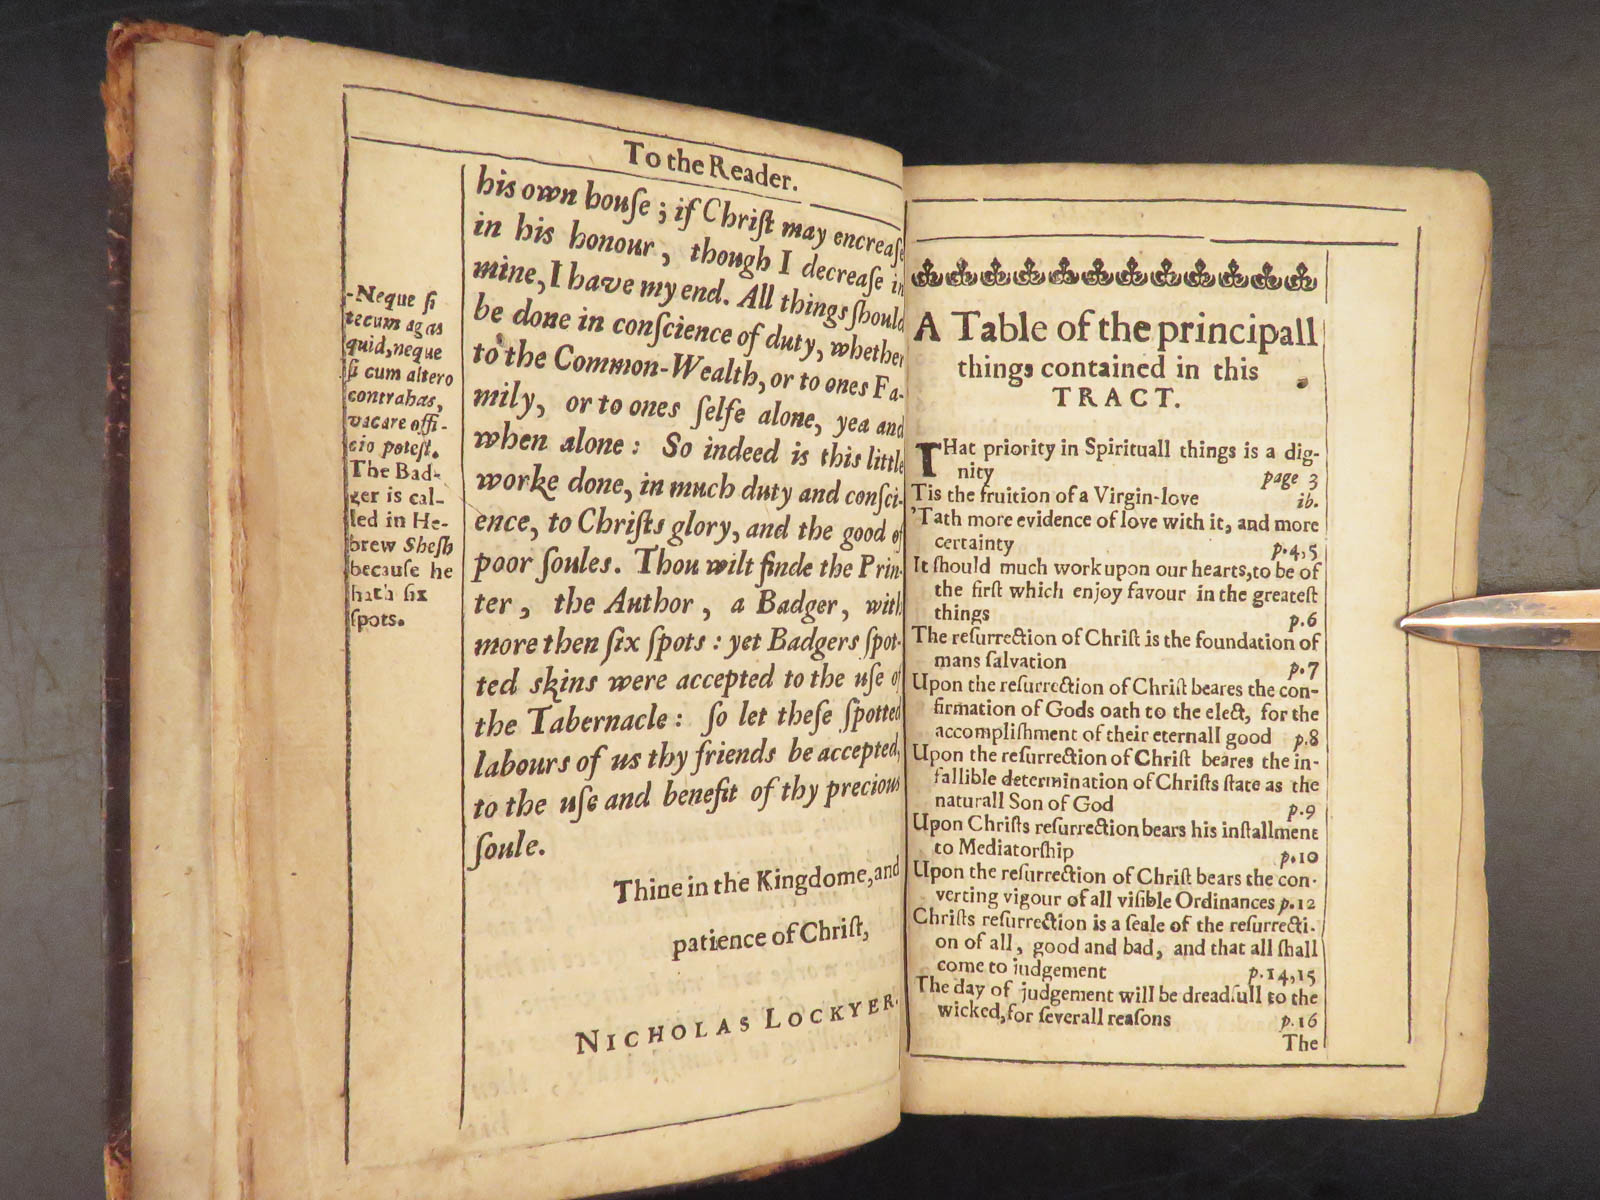 To the Reader.
his own houſe; if Chriſt may encreaſe
in his honour, though I decreaſe in
mine, I have my end. All things ſhould
be done in conſcience of duty, whether
to the Common-Wealth, or to ones Fa-
mily, or to ones ſelfe alone, yea and
when alone: So indeed is this little
worke done, in much duty and conſci-
ence, to Chriſts glory, and the good of
poor ſoules. Thou wilt finde the Prin-
ter, the Author, a Badger, with
more then ſix ſpots: yet Badgers ſpot-
ted skins were accepted to the uſe of
the Tabernacle: ſo let theſe ſpotted
labours of us thy friends be accepted,
to the uſe and benefit of thy precious
ſoule.
Thine in the Kingdome, and
patience of Chriſt,
NICHOLAS LOCKYER.
-Neque ſi
tecum agas
quid, neque
ſi cum altero
contrahas,
vacare offi-
cio poteſt.
The Bad-
ger is cal-
led in He-
brew Sheſh
becauſe he
hath ſix
ſpots.
A Table of the principall
things contained in this
TRACT.
THat priority in Spirituall things is a dig-
nity page 3
Tis the fruition of a Virgin-love ib.
'Tath more evidence of love with it, and more
certainty p.4,5
It ſhould much work upon our hearts, to be of
the firſt which enjoy favour in the greateſt
things p.6
The reſurrection of Chriſt is the foundation of
mans ſalvation p.7
Upon the reſurrection of Chriſt beares the con-
firmation of Gods oath to the elect, for the
accompliſhment of their eternall good p.8
Upon the reſurrection of Chriſt beares the in-
fallible determination of Chriſts ſtate as the
naturall Son of God p.9
Upon Chriſts reſurrection bears his inſtallment
to Mediatorſhip p.10
Upon the reſurrection of Chriſt bears the con-
verting vigour of all viſible Ordinances p.12
Chriſts reſurrection is a ſeale of the reſurrecti-
on of all, good and bad, and that all ſhall
come to judgement p.14,15
The day of judgement will be dreadfull to the
wicked, for ſeverall reaſons p.16
The